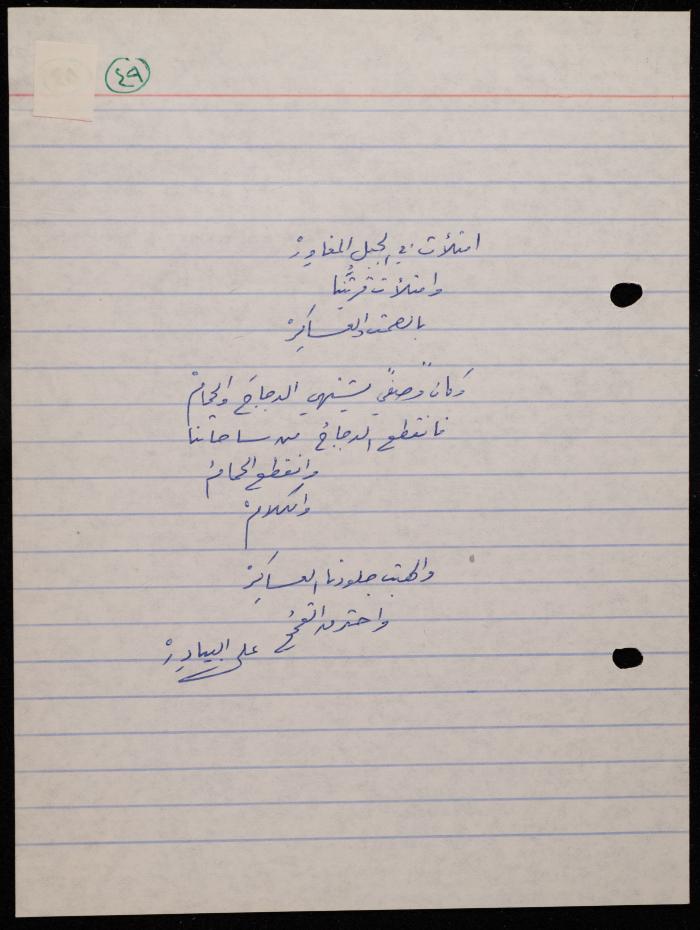 ٤٩
امتلأت في الجبل المغاوِرْ
وامتلأت قريتُنا
بالصمت والعساكِرْ
وَكانَ وصفي يشتهي الدجاجَ والحمامْ
فانقطع الدجاجُ من ساحاتنا
وانقطع الحمامُ
والكلامْ
والهبت جلودنا العساكِرْ
واحترق القمحُ على البيادِرْ